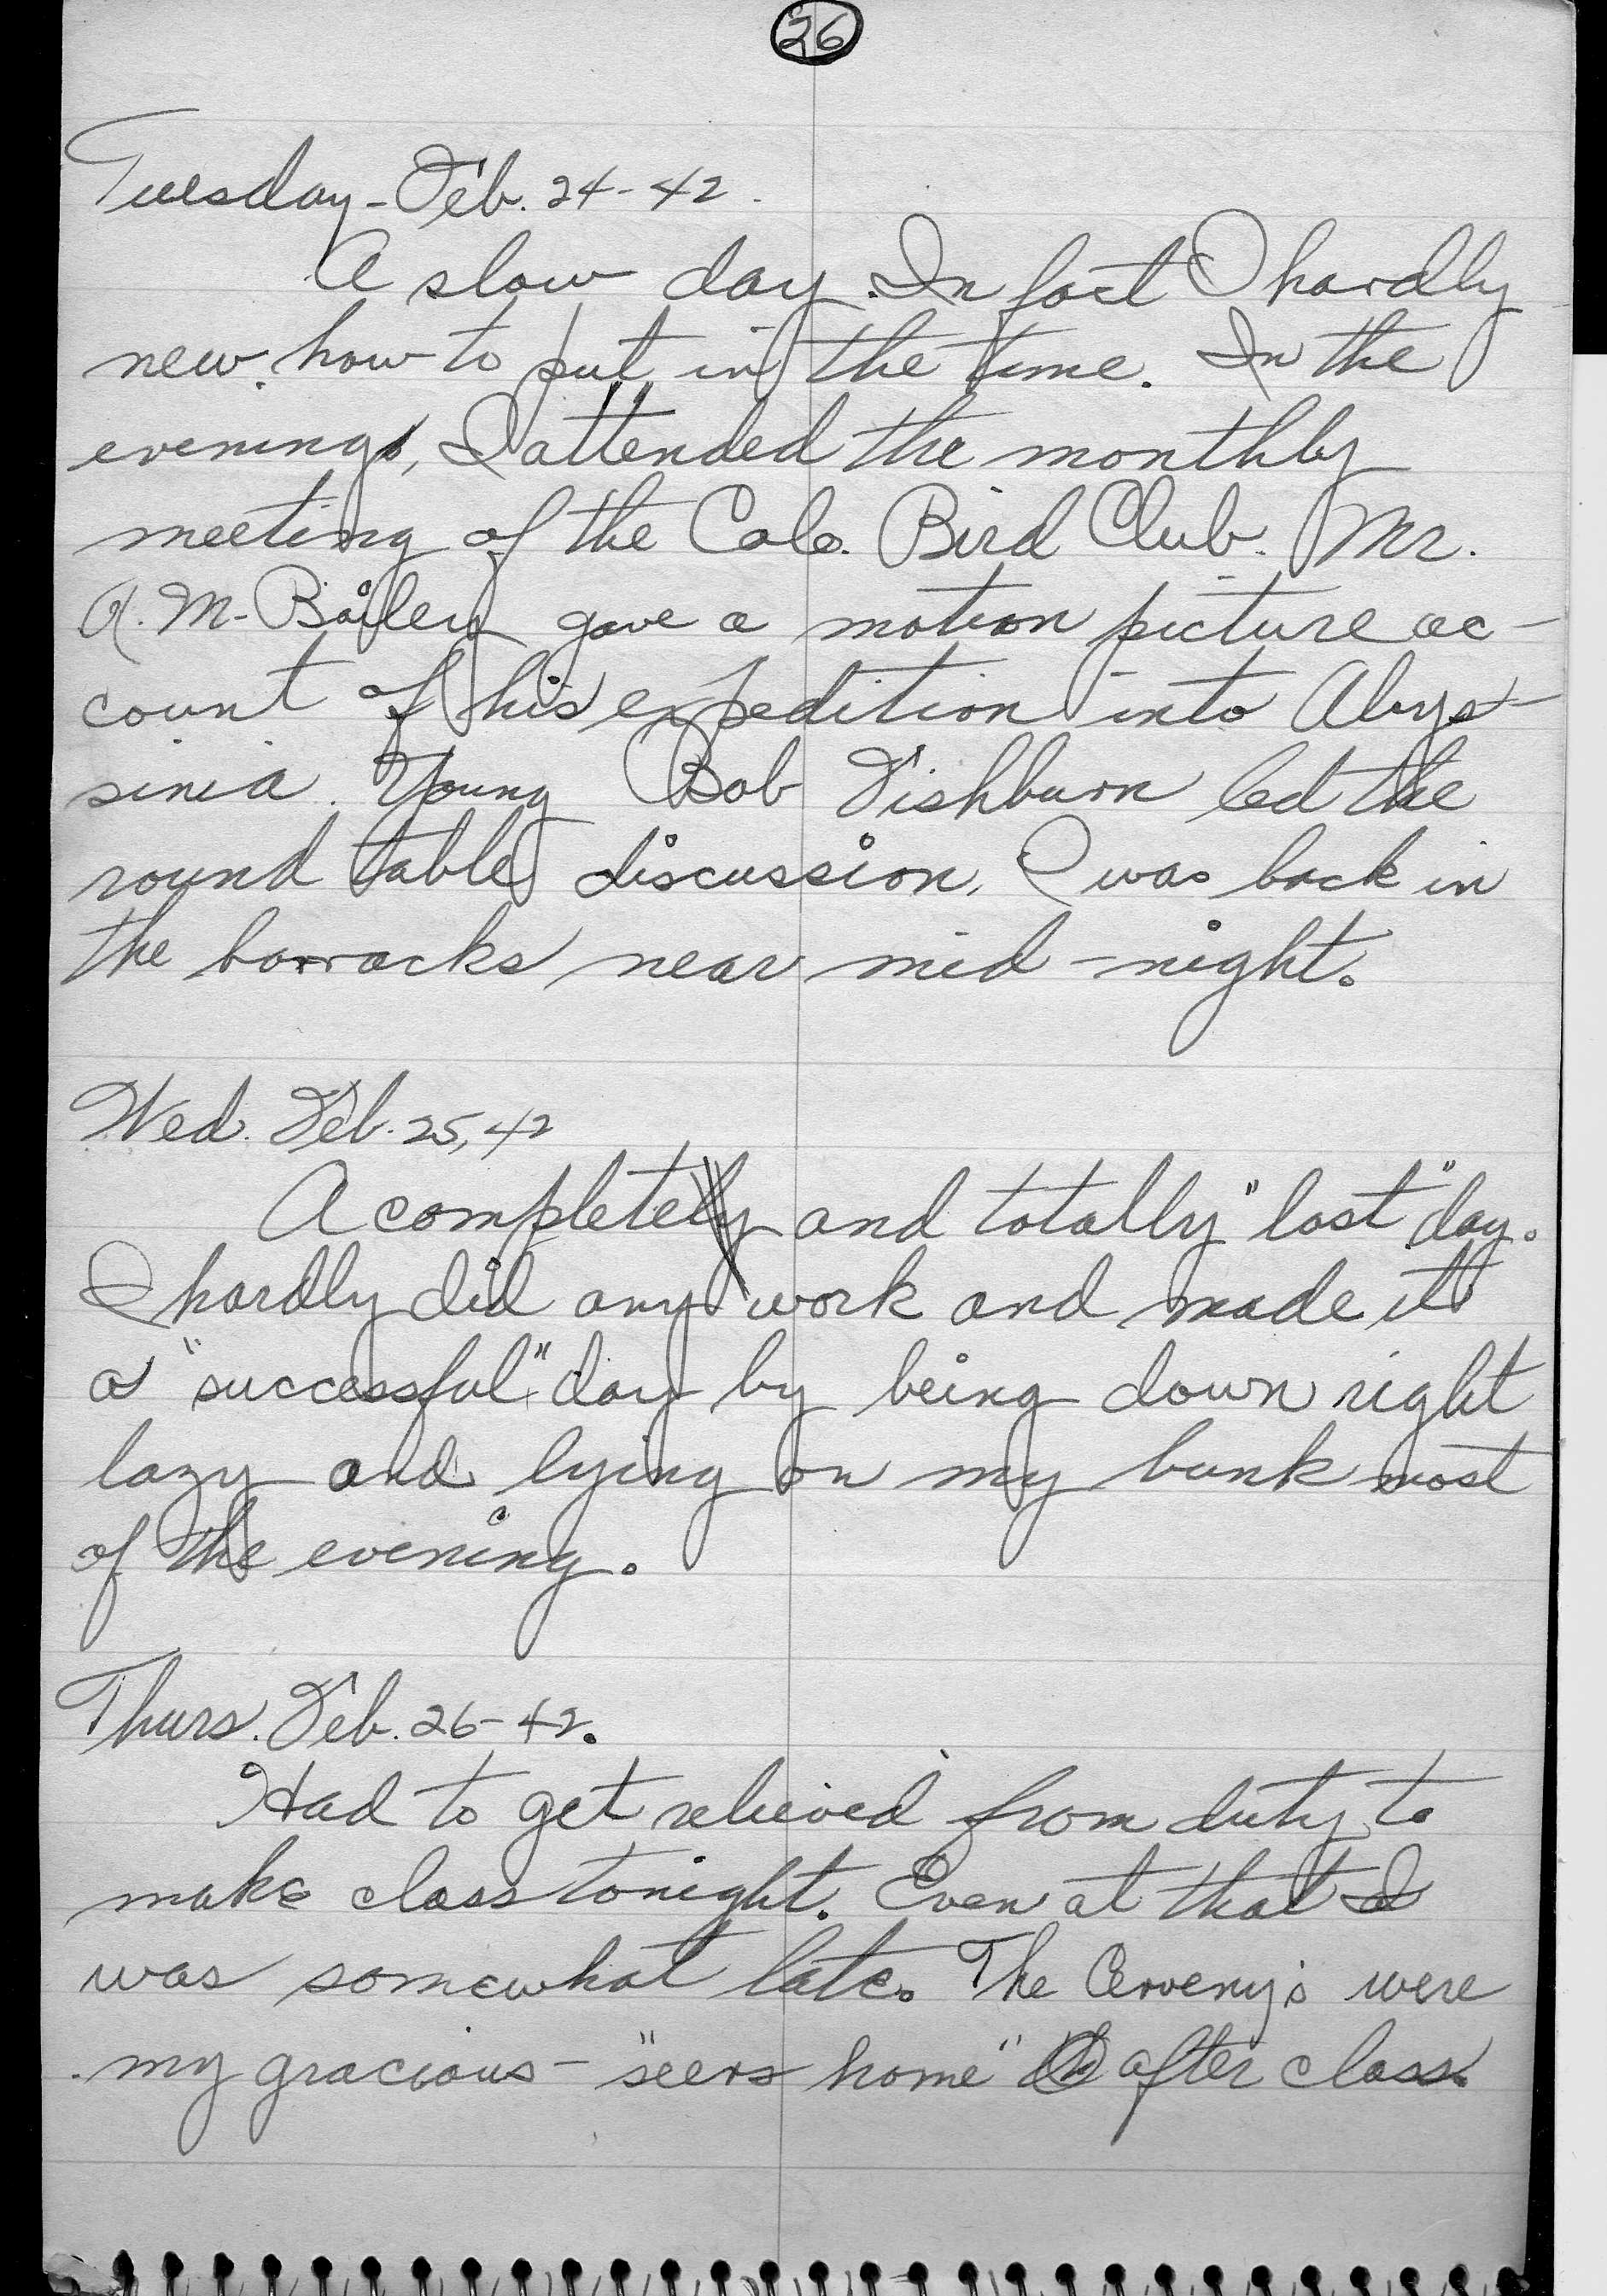 26
Tuesday - Feb. 24 - 42.
A slow day. In fact I hardly
new how to put in the time. In the
evening, I attended the monthly
meeting of the Colo. Bird Club. Mr.
A. M. Bailey gave a motion picture ac-
count of his expedition into Abys-
sinia. Young Bob Fishburn led the
round table discussion. I was back in
the barracks near mid-night.
Wed. Feb. 25, 42
A complete and totally "lost" day.
I hardly did any work and made it
a "successful" day by being down right
lazy and lying on my bunk most
of the evening.
Thurs. Feb. 26 - 42.
Had to get relieved from duty to
make class tonight. Even at that I
was somewhat late. The Cerveny's were
my gracious - "seers home" after class.